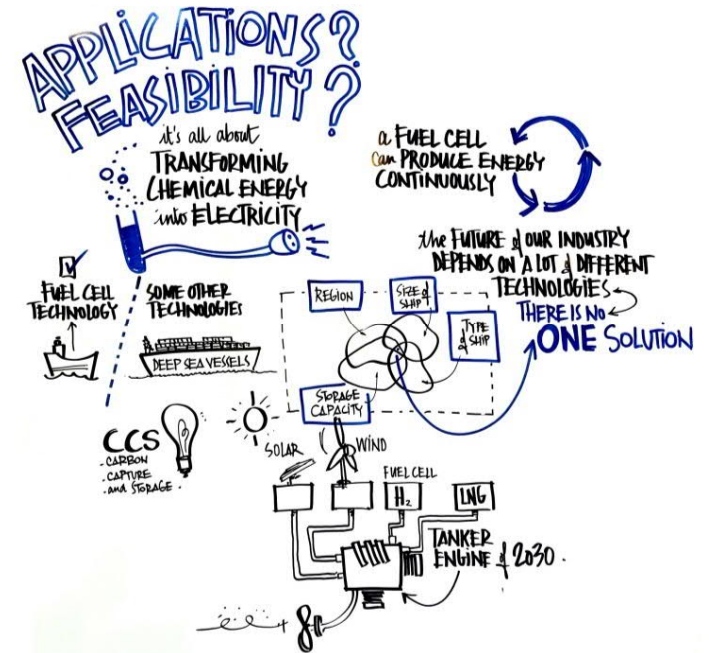 APPLICATIONS?
FEASIBILITY?
it's all about
TRANSFORMING
CHEMICAL ENERGY
into ELECTRICITY
a FUEL CELL
can PRODUCE ENERGY
CONTINUOUSLY
the FUTURE of OUR INDUSTRY
DEPENDS ON A LOT of DIFFERENT
TECHNOLOGIES
THERE IS NO
ONE SOLUTION
FUEL CELL
TECHNOLOGY
SOME OTHER
TECHNOLOGIES
DEEP SEA VESSELS
REGION
SIZE of
SHIP
TYPE
of SHIP
STORAGE
CAPACITY
CCS
- CARBON
- CAPTURE
- and STORAGE -
SOLAR
WIND
FUEL CELL
H2
LNG
TANKER
ENGINE of 2030.